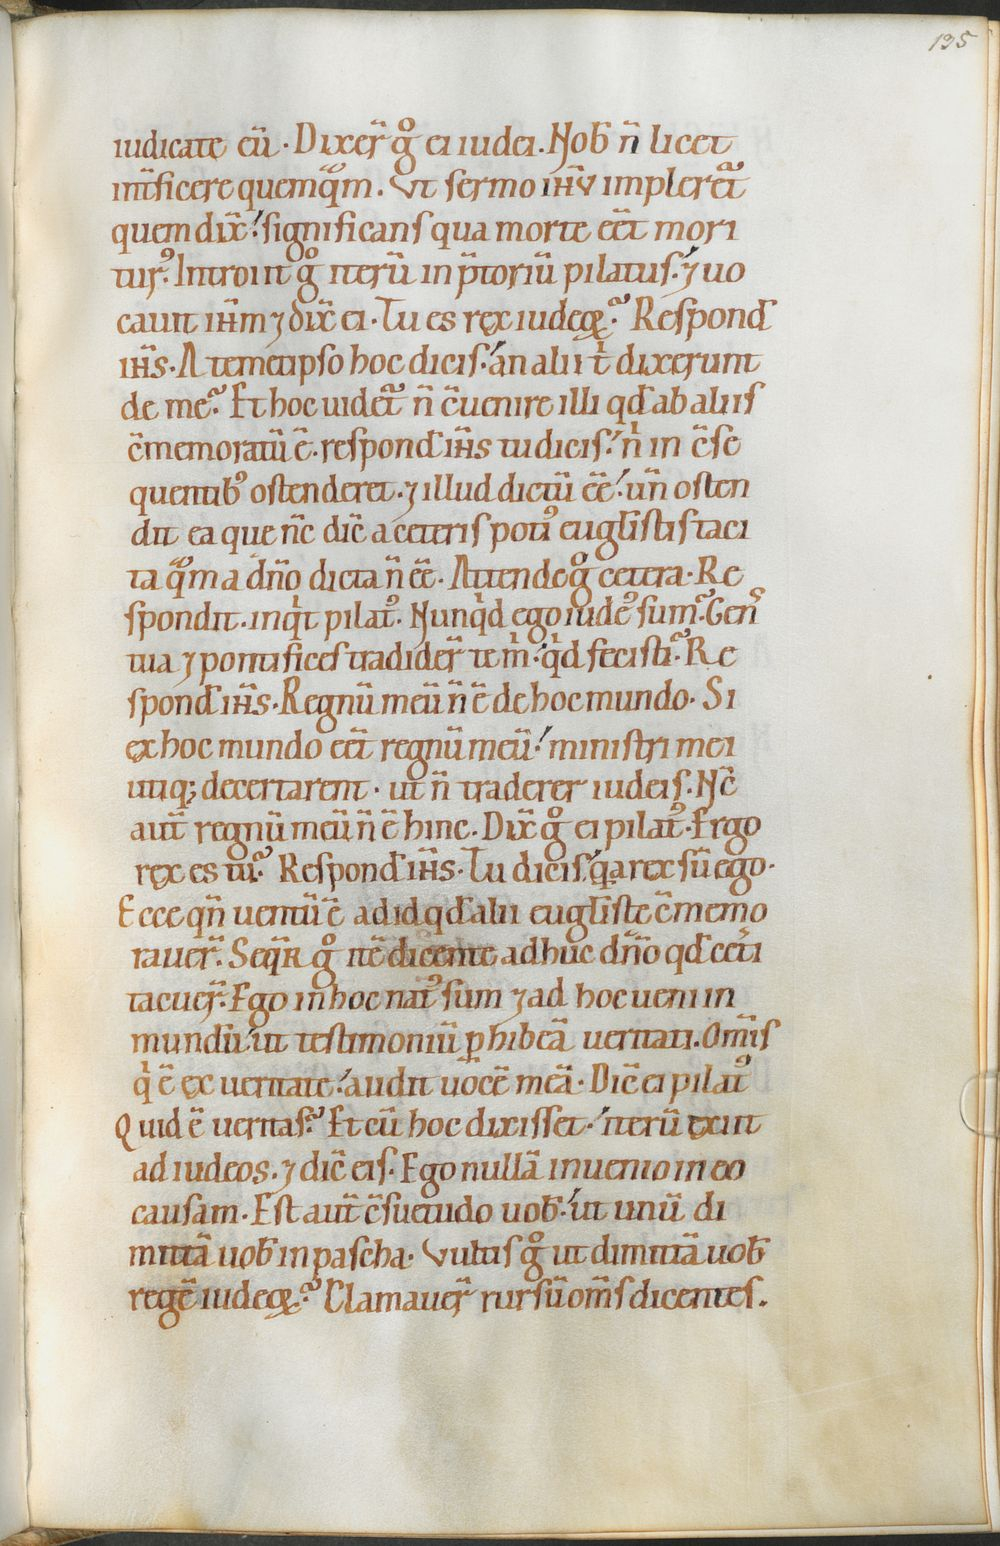 135
iudicate eū. Dixer̄ gͦ ei iudei. Nob̄ n̄ licet
int̄ficere quemq̊m. Vt sermo ih̄v impleret᷑
quem dix̄ significans qua morte eēt mori
turꝰ. Introiit gͦ iterū in p̄toriū pilatus. ⁊ uo
cauit ih̄m ⁊ dix̄ ei. Tu es rex iudeoꝝ? Respond̄
ih̄s. A temetipso hoc dicis. an alii t̓ dixerunt
de me? Et hoc uidet᷑ n̄ c̄uenire illi qd̄ ab aliis
c̄memoratū ē. respond̄ ih̄s tu dicis. n̓ in c̄se
quentibꝰ ostenderet. ⁊ illud dictū eē. un̄ osten
dit ea que nc̄ dic̄ a ceteris potiꝰ eugl̄istis taci
ta q̊m a dn̄o dicta n̄ eē. Attende gͦ cetera. Re
spondit. inqͥt pilatꝰ. Nunqͥd ego iudeꝰ sum? Gens̄
tua ⁊ pontifices tradider̄ te m̓. qͥd fecisti? Re
spond̄ ih̄s. Regnū meū n̄ ē de hoc mundo. Si
ex hoc mundo eēt regnū meū. ministri mei
utiq; decertarent. ut n̄ traderer iudeis. Nc̄
aut̄ regnū meū n̄ ē hinc. Dix̄ gͦ ei pilatꝰ. Ergo
rex es tu? Respond̄ ih̄s. Tu dicis. qͥa rex sū ego.
Ecce qn̄ uentū ē ad id qd̄ alii eugl̄iste c̄memo
rauer̄. Seqͥt᷑ gͦ itē dicente adhuc dn̄o qd̄ cet̄i
tacuer̄. Ego in hoc natꝰ sum ⁊ ad hoc ueni in
mundū ut testimoniū ꝑhibeā ueritati. Om̄is
qͥ ē ex ueritate. audit uocē meā. Dic̄ ei pilatꝰ
Quid ē ueritas? Et cū hoc dixisset. iterū exiit
ad iudeos. ⁊ dic̄ eis. Ego nullā inuenio in eo
causam. Est aut̄ c̄suetudo uob̄. ut unū di
mittā uob̄ in pascha. Vultis gͦ ut dimittā uob̄
regē iudeoꝝ? Clamauer̄ rursū om̄s dicentes.